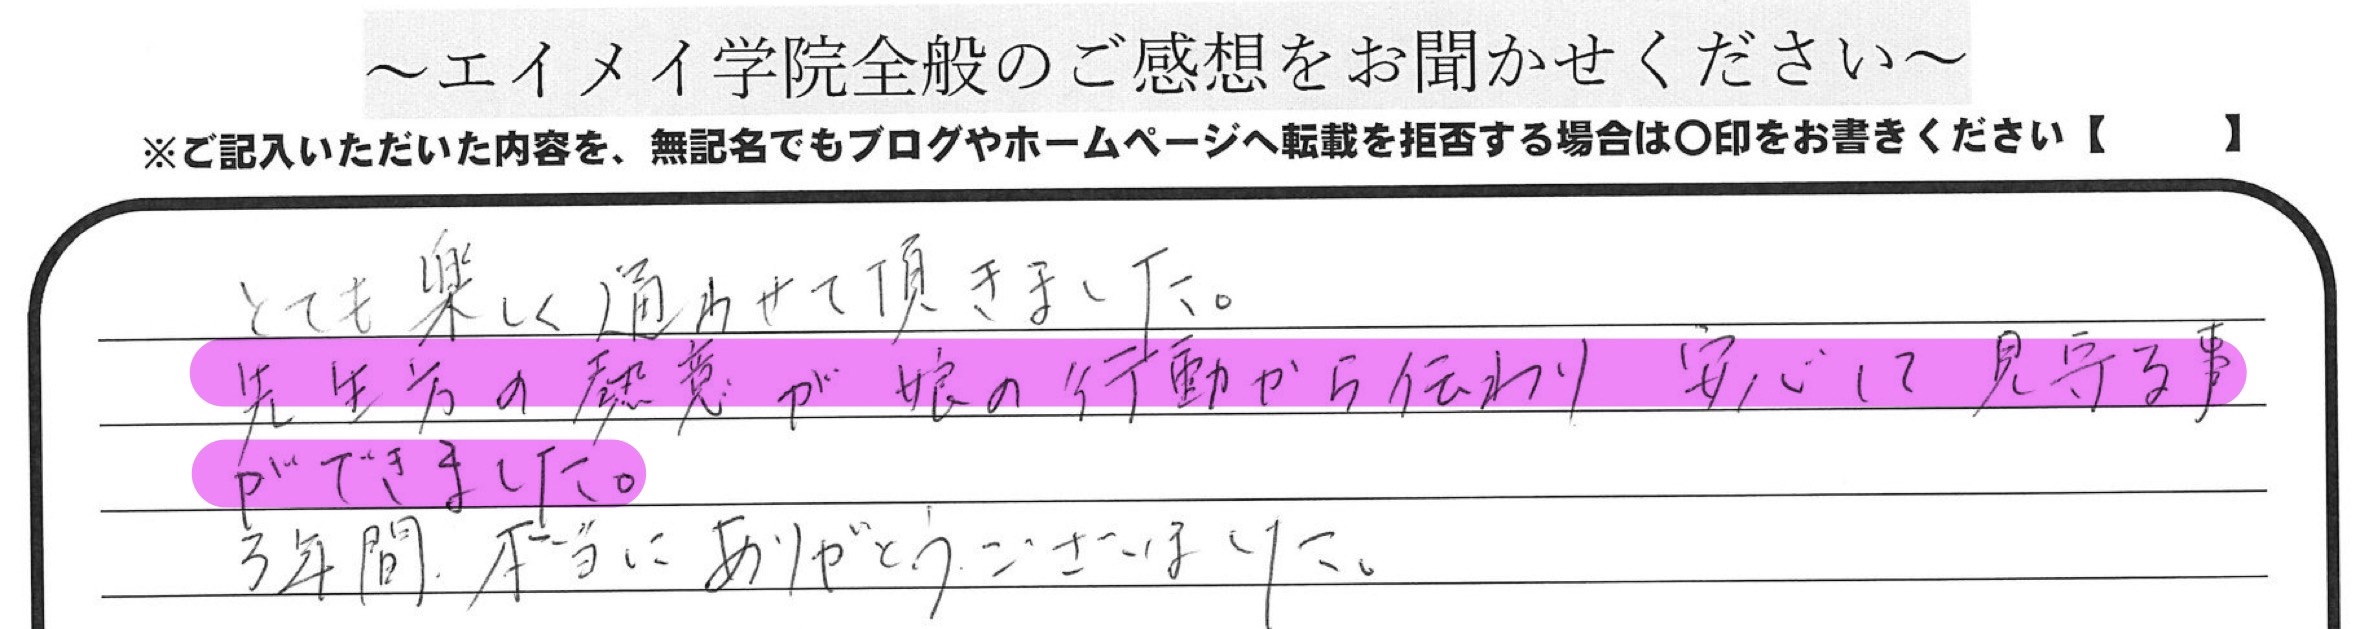 ～エイメイ学院全般のご感想をお聞かせください～
※ご記入いただいた内容を、無記名でもブログやホームページへ転載を拒否する場合は〇印をお書きください【　　　】
とても楽しく通わせて頂きました。
先生方の熱意が娘の行動から伝わり 安心して見守る事
ができました。
3年間、本当にありがとうございました。